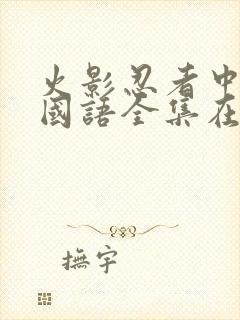 火影忍者中
國語全集在
撫宇